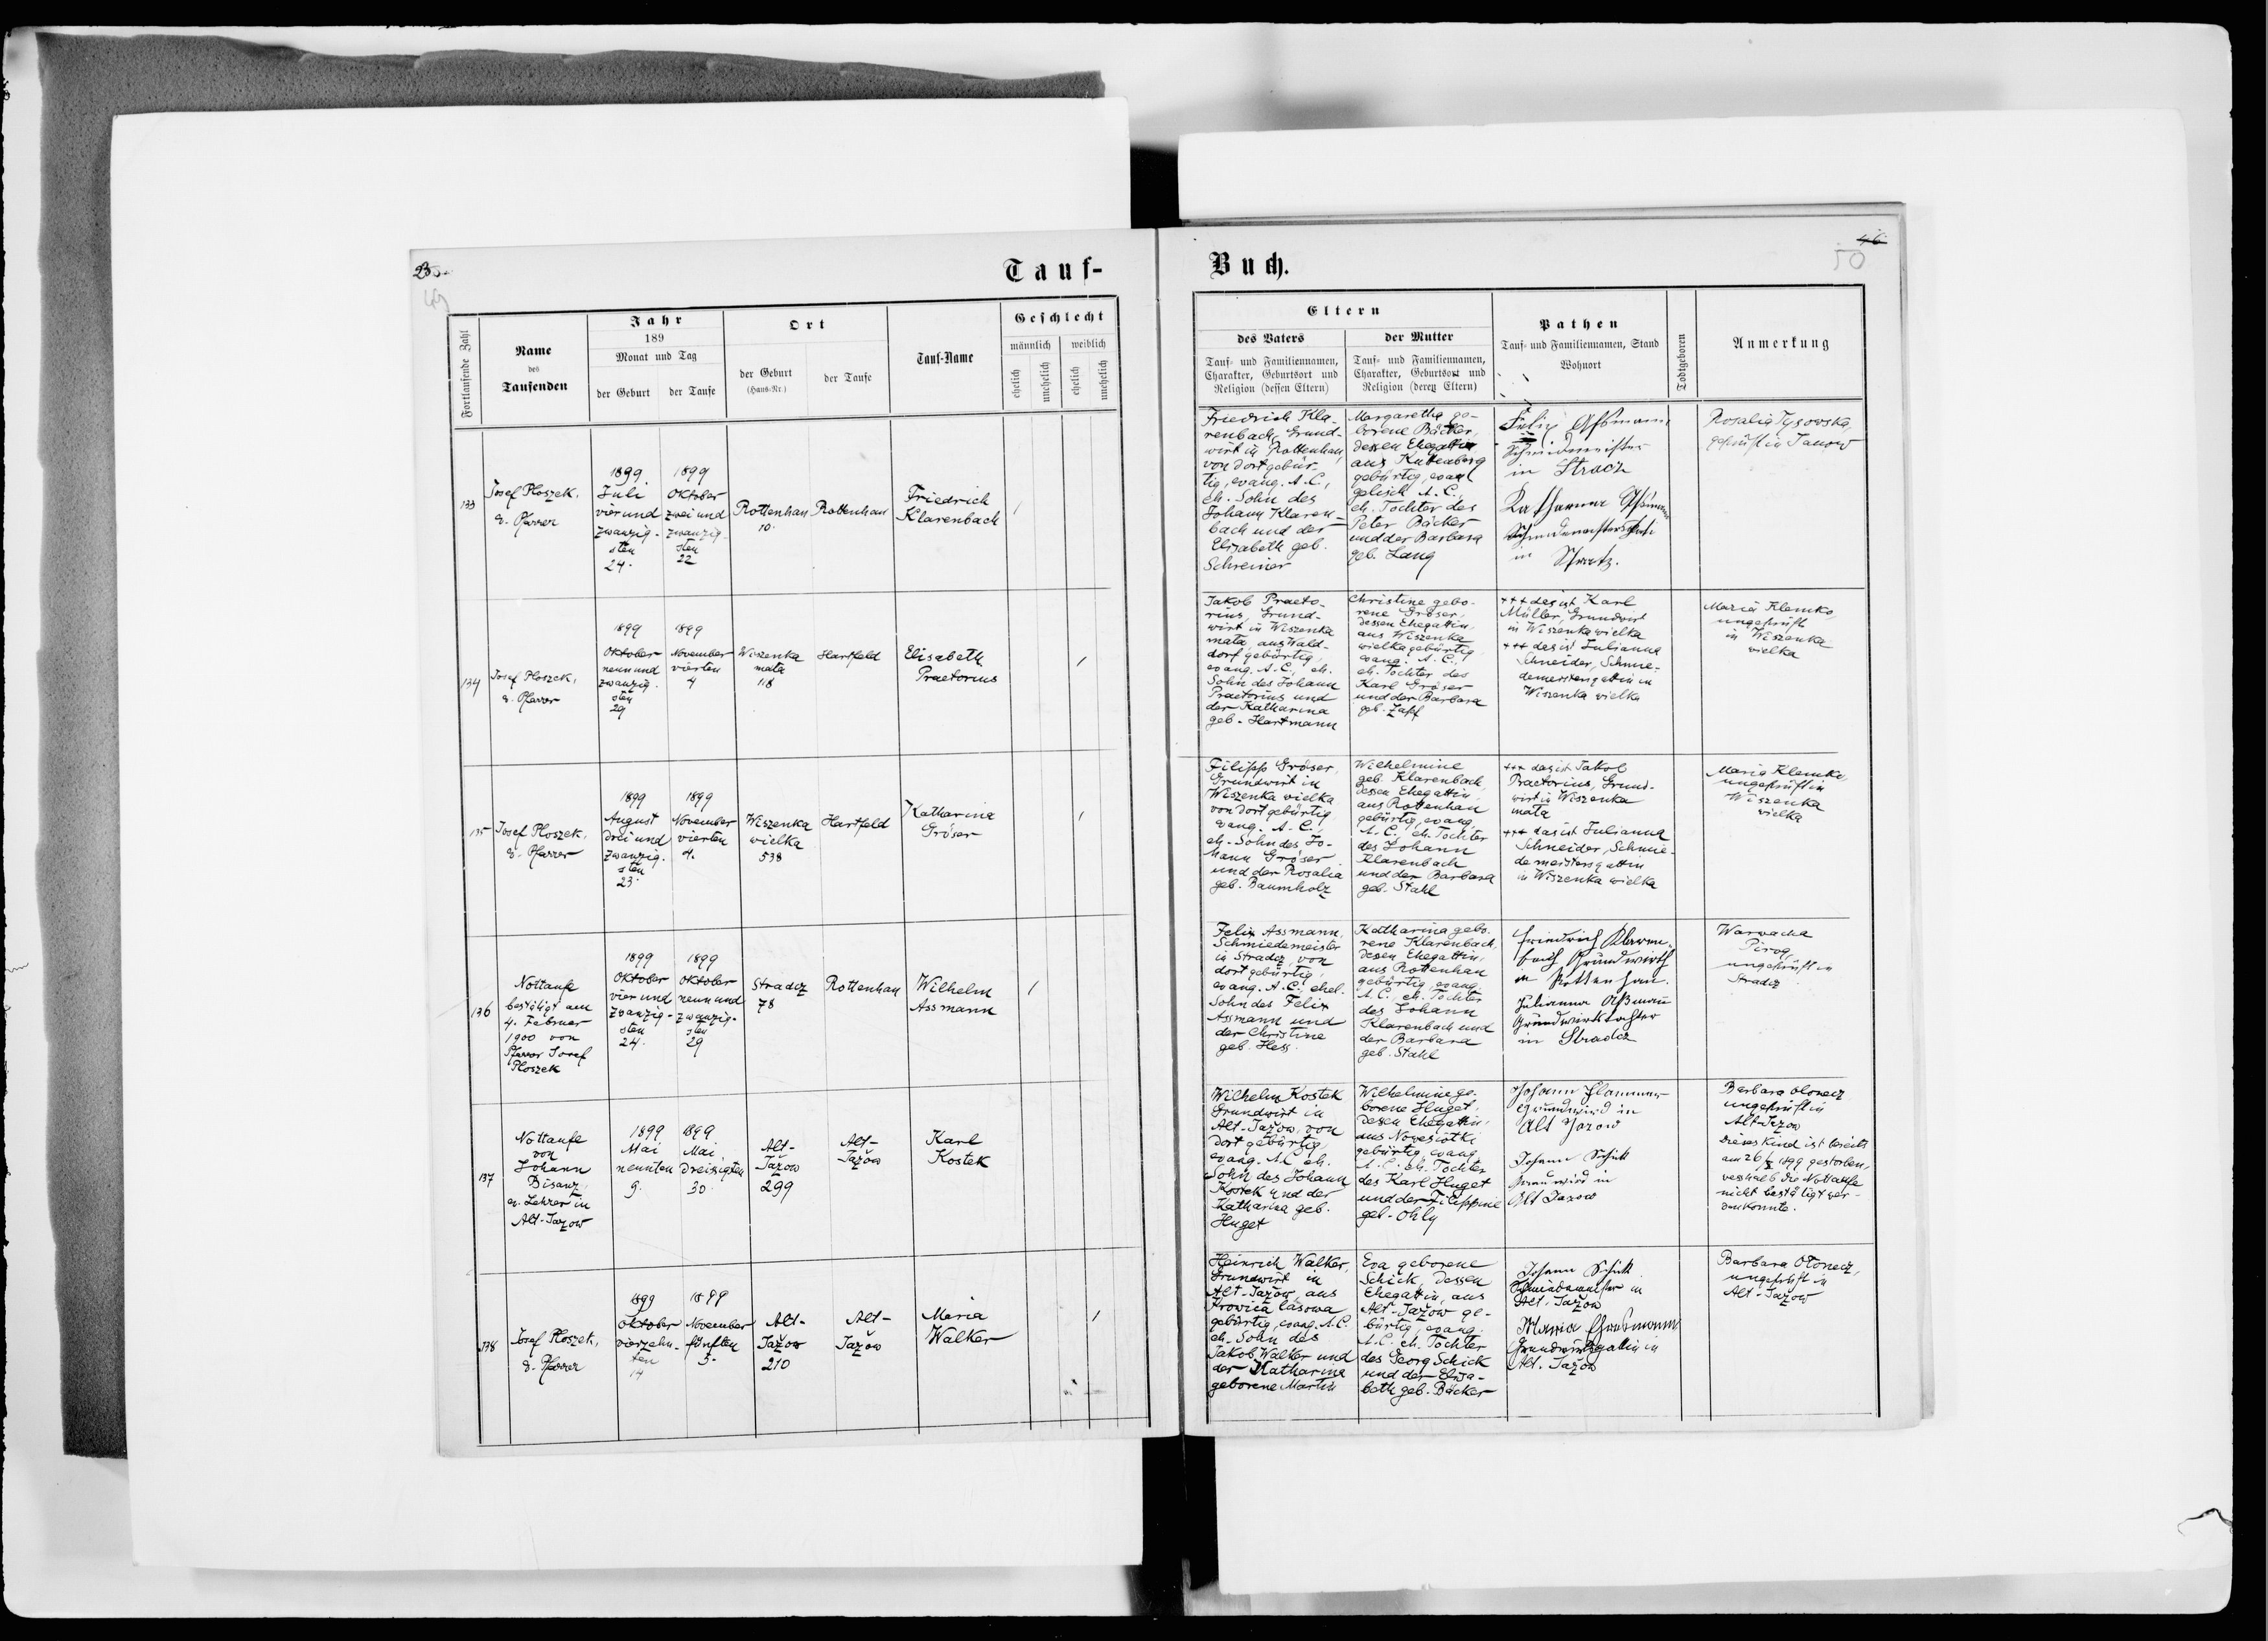 Tauf-
Fortlaufende Zahl
Name
des
Taufenden
Jahr
189
Monat und Tag
der Geburt
der Taufe
Ort
der Geburt
(Haus-Nr.)
der Taufe
Tauf-Name
Geschlecht
männlich
weiblich
ehelich
unehelich
ehelich
unehelich
133
Josef Ploszek,
e. Pfarrer
1899
Juli
vier und
zwanzig-
sten
24.
1899
Oktober
zwei und
zwanzig-
sten
22
Rottenhan
10.
Rottenhan
Friedrich
Klarenbach
134
Josef Ploszek,
e. Pfarrer
1899
Oktober
neun und
zwanzig-
sten
29
1899
November
vierten
4
Wiszenka
mała
118
Hartfeld
Elisabeth
Praetorius
135
Josef Ploszek,
e. Pfarrer
1899
August
drei und
zwanzig-
sten
23.
1899
November
vierten
4.
Wiszenka
wielka
538
Hartfeld
Katharina
Gröser
136
Nottaufe
bestätigt am
4. Februar
1900 von
Pfarrer Josef
Ploszek
1899
Oktober
vier und
zwanzig-
sten
24.
1899
Oktober
neun und
zwanzig-
sten
29
Stradcz
78
Rottenhan
Wilhelm
Assmann
137
Nottaufe
von
Johann
Bisanz,
ev. Lehrer in
Alt-Jazow
1899
Mai
neunten
9.
1899
Mai
dreisigten
30.
Alt-
Jażow
299
Alt-
Jażow
Karl
Kostek
138
Josef Ploszek,
e. Pfarrer
1899
Oktober
vierzehn-
ten
14
1899
November
fünften
5.
Alt-
Jażow
210
Alt-
Jażow
Maria
Walker
49
Buch.
46
50
Eltern
des Vaters
Tauf- und Familiennamen,
Charakter, Geburtsort und
Religion (dessen Eltern)
der Mutter
Tauf- und Familiennamen,
Charakter, Geburtsort und
Religion (deren Eltern)
Pathen
Tauf- und Familiennamen, Stand
Wohnort
Todtgeboren
Anmerkung
Friedrich Kla-
renbach, Grund-
wirt in Rottenhan,
von dort gebür-
tig, evang. A.C.,
eh. Sohn des
Johann Klaren-
bach und der
Elisabeth geb.
Schreiner
Margaretha ge-
borene Bäcker,
dessen Ehegattin
aus Kuttenberg
gebürtig, evan
gelisch A.C.,
eh. Tochter des
Peter Bäcker
und der Barbara
geb. Lang
Felix Assmann
Schmidmeister
in Stradcz
Katharina Assmann
in
Rosalia Tysovska
geprüft in Janow
Jakob Praeto-
rius, Grund-
wirt in Wiszenka
mała, aus Wald-
dorf gebürtig,
evang. A.C., eh.
Sohn des Johann
Praetorius und
der Katharina
geb. Hartmann
Christine gebo-
rene Gröser,
dessen Ehegattin,
aus Wiszenka
wielka gebürtig
evang. A.C.,
eh. Tochter des
Karl Gröser
und der Barbara
geb. Zapf
+++ das ist Karl
Müller, Grundwirt
in Wiszenka wielka
+++ das ist Julianna
Schneider, Schmie-
demeistersgattin in
Wiszenka wielka
Maria Klemko
ungeprüft
in Wiszenka
wielka
Filipp Gröser,
Grundwirt in
Wiszenka wielka
von dort gebürtig
evang. A.C.,
eh. Sohn des Jo-
hann Gröser
und der Rosalia
geb. Baumholz
Wilhelmine
geb. Klarenbach,
dessen Ehegattin,
aus Rottenhan
gebürtig, evang.
A.C., eh. Tochter
des Johann
Klarenbach
und der Barbara
geb. Stahl
+++ das ist Jakob
Praetorius, Grund-
wirt in Wiszenka
mała
+++ das ist Julianna
Schneider, Schmie-
demeistersgattin
in Wiszenka wielka
Maria Klemko
ungeprüft in
Wiszenka
wielka
Felix Assmann,
Schmiedemeister
in Stradcz, von
dort gebürtig,
evang. A.C., ehel.
Sohn des Felix
Assmann und
der Christine
geb. Hess.
Katharina gebo-
rene Klarenbach,
dessen Ehegattin,
aus Rottenhan
gebürtig, evang.
A.C., eh. Tochter
des Johann
Klarenbach und
der Barbara
geb. Stahl
Friedrich Klaren-
bach Grundwirth
in Rottenhan.
Julianna Aßmann
Grundwirtstochter
in Stradcz
Warwacha
Pirog,
ungeprüft in
Stradcz
Wilhelm Kostek
Grundwirt in
Alt-Jażow, von
dort gebürtig,
evang. A.C. eh.
Sohn des Johann
Kostek und der
Katharina geb.
Huget
Wilhelmine ge-
borene Huget,
dessen Ehegattin,
aus Nowesiołki
gebürtig, evang.
A.C. eh. Tochter
des Karl Huget
und der Filippine
geb. Ohly
Johann
Grundwird in
Alt Jazow
Johann Schick
Grundwird in
Alt Jazow
Barbara Ołonecz,
ungeprüft in
Alt-Jazow
Dieses Kind ist bereits
am 26/ 1899 gestorben,
weshalb die Nottaufe
nicht bestätigt wer-
den konnte.
Heinrich Walker,
Grundwirt in
Alt-Jażow, aus
Krowica lasowa
gebürtig, evang. A.C.
eh. Sohn des
Jakob Walker und
der Katharina
geborene Martin
Eva geborene
Schick, dessen
Ehegattin, aus
Alt-Jażow ge-
bürtig, evang.
A.C. eh. Tochter
des Georg Schick
und der Elisa-
beth geb. Bäcker
Johann Schick
Schmiedemeister in
Alt-Jażow
Maria
Grundwirtsgattin in
Alt. Jażow
Barbara Ołonecz,
ungeprüft in
Alt-Jażow